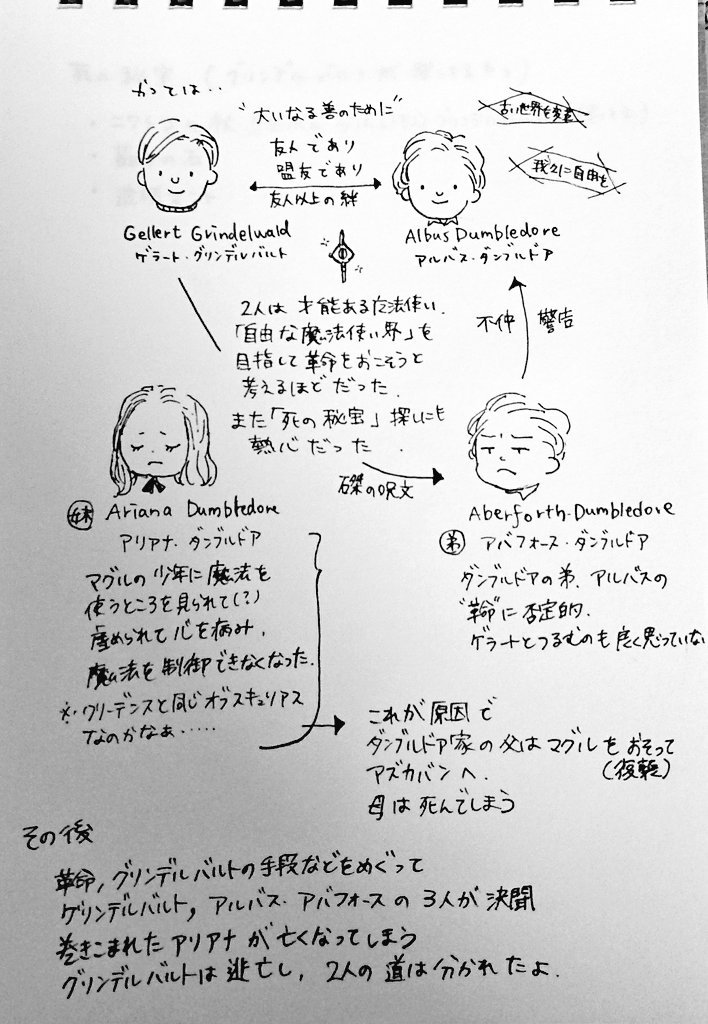 かつては‥
"大いなる善のために"
友人であり
盟友であり
友人以上の絆
古い世界を変革
我々に自由を
Gellert Grindelwald
ゲラート・グリンデルバルト
Albus Dumbledore
アルバス・ダンブルドア
2人は才能ある魔法使い.
「自由な魔法使い界」を
目指して革命をおこそうと
考えるほどだった.
また「死の秘宝」探しにも
熱心だった.
不仲
警告
磔の呪文
妹 Ariana Dumbledore
アリアナ・ダンブルドア
マグルの少年に魔法を
使うところを見られて(?)
虐められて心を病み,
魔法を制御できなくなった.
※・クリーデンスと同じオブスキュリアス
なのかなぁ‥‥‥
Aberforth・Dumbledore
弟 アバフォース・ダンブルドア
ダンブルドアの弟. アルバスの
"革命"に否定的.
ゲラートとつるむのも良く思っていない
これが原因で
ダンブルドア家の父はマグルをおそって
(復讐)
アズカバンへ.
母は死んでしまう
その後
革命, グリンデルバルトの手段などをめぐって
グリンデルバルト, アルバス・アバフォースの3人が決闘
巻きこまれたアリアナが亡くなってしまう
グリンデルバルトは逃亡し, 2人の道は分かれたよ.